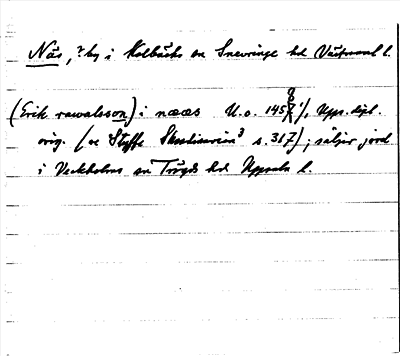 Näs, ? by i Kolbäcks sn Snevringe hd Västmanl l.
(Erik rawalsson) i næs U.o. 1458 /, Upps.dipl.
orig. (se Styffe Skandinavien³ s.317); säljer jord
i Veckholms sn Trögds hd Uppsala l.